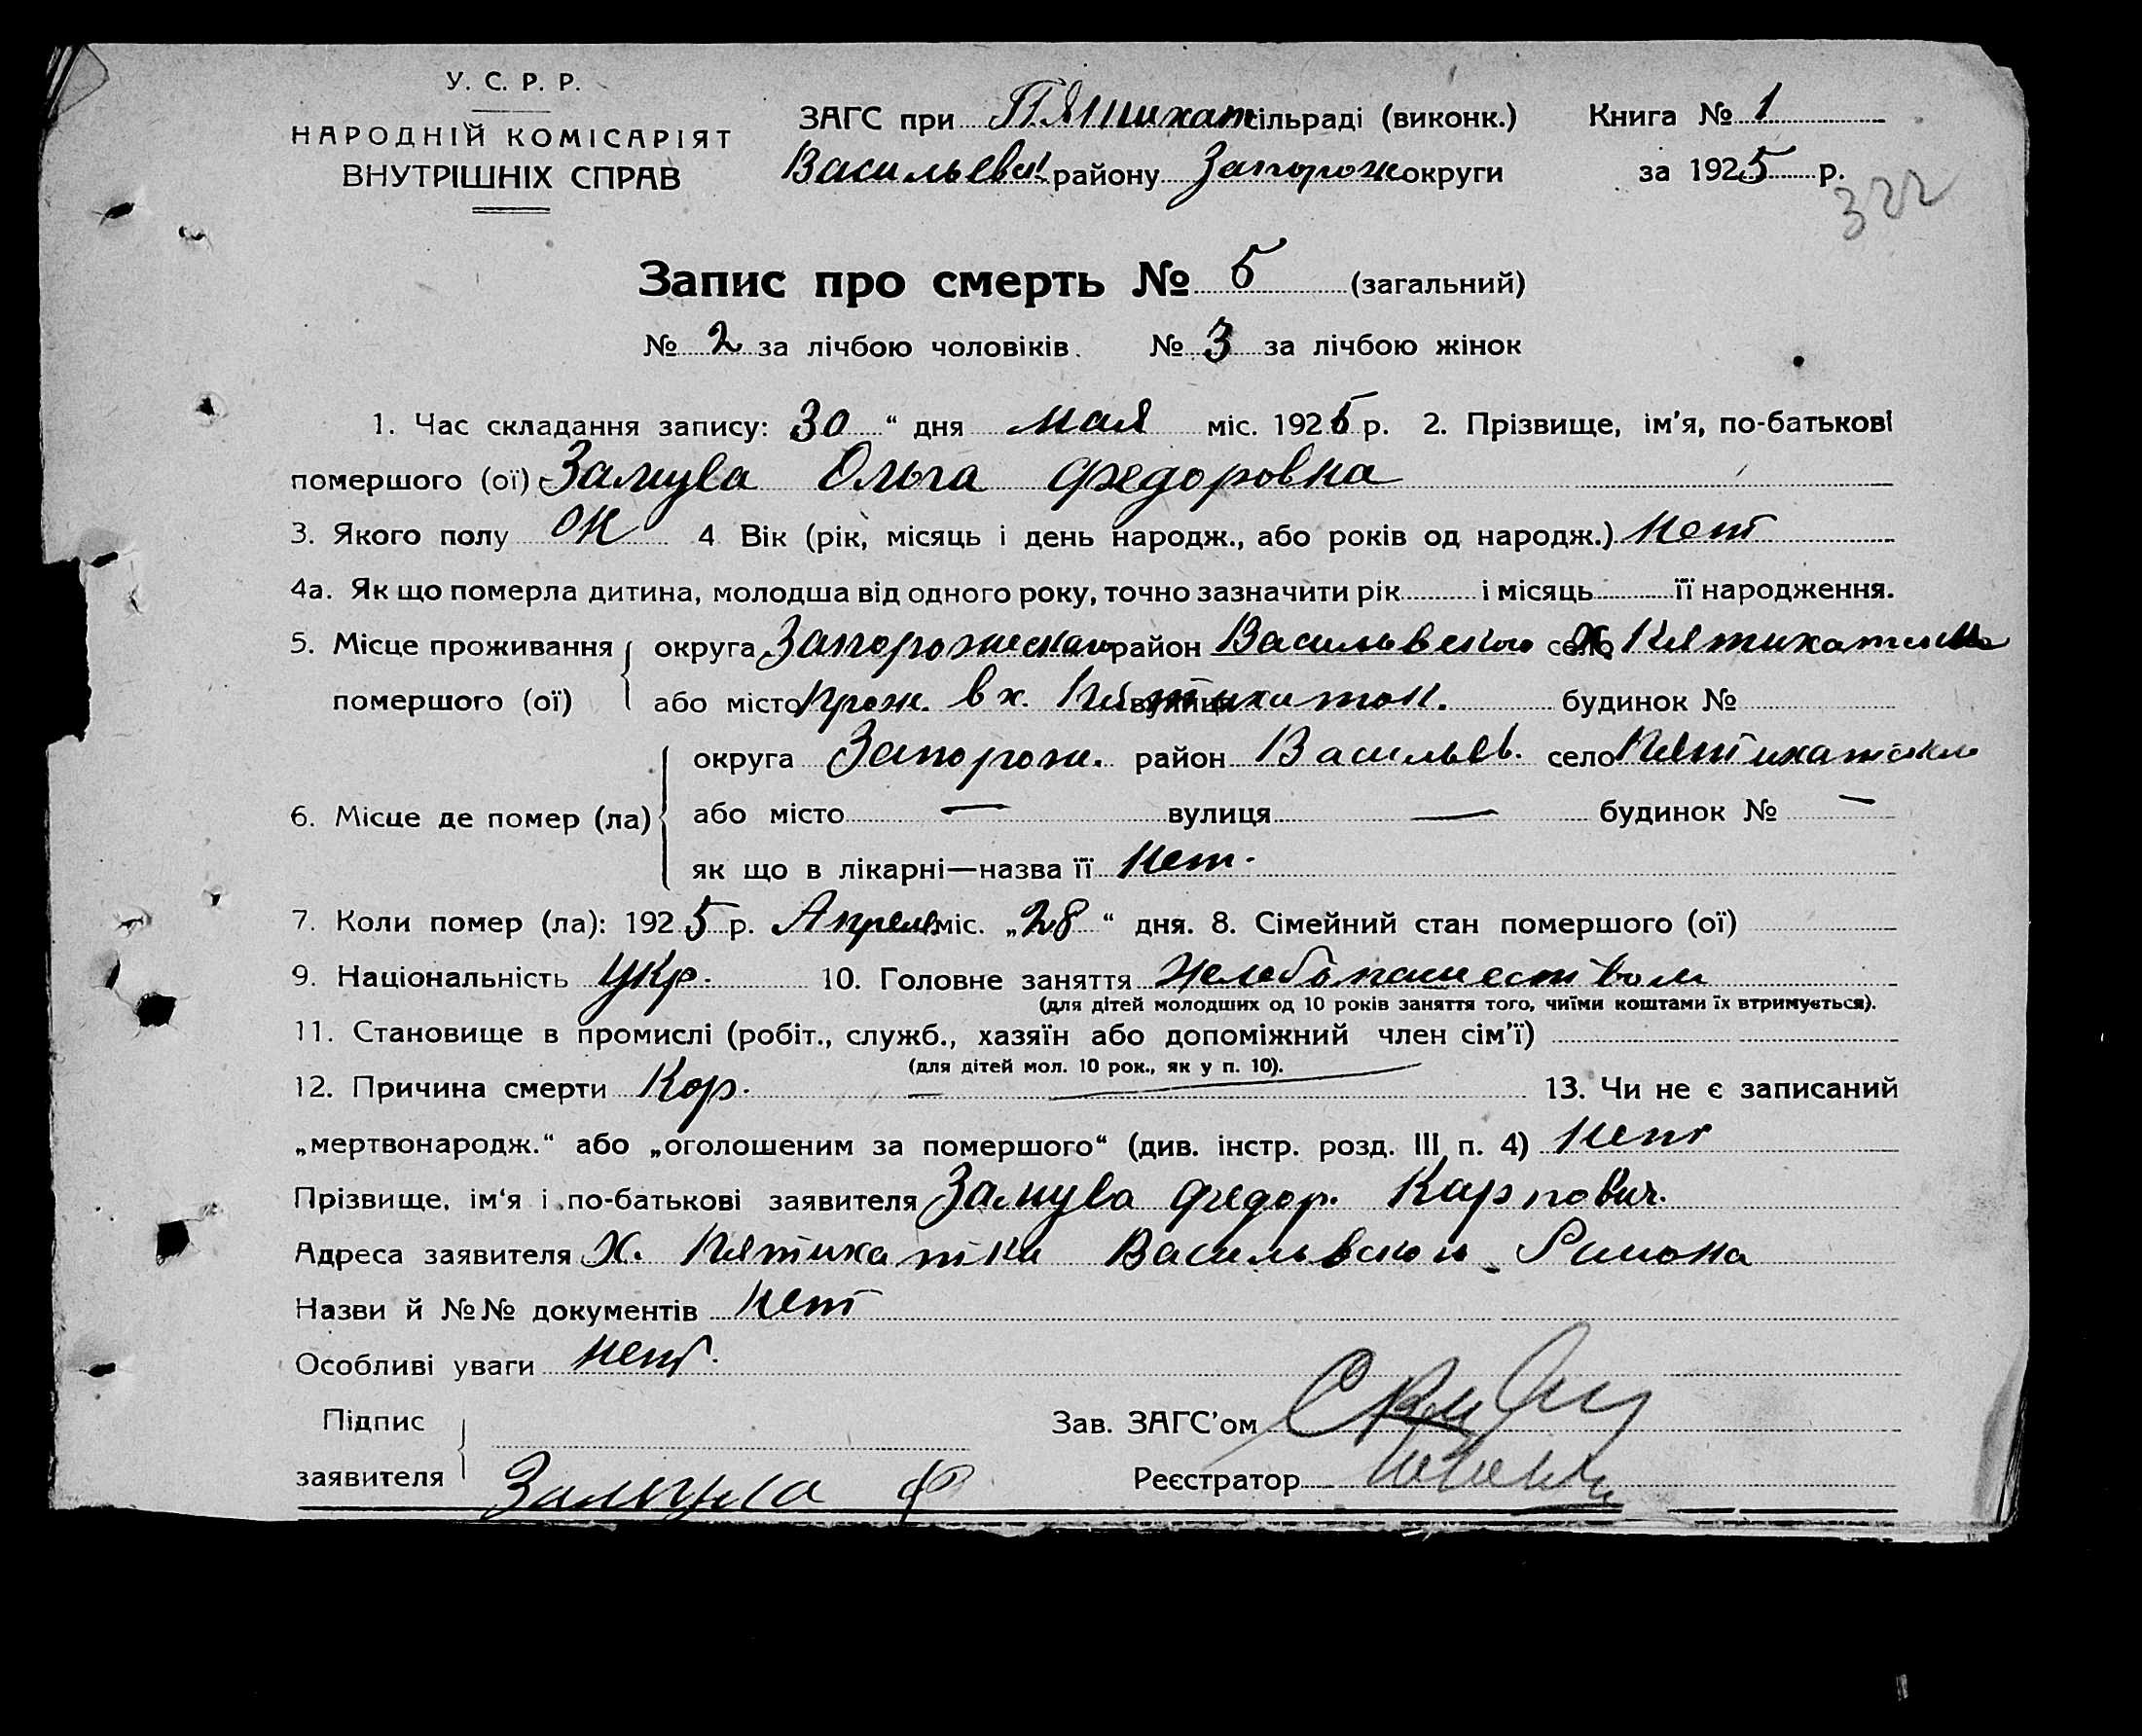 У. С. Р. Р.
НАРОДНІЙ КОМІСАРІЯТ
ВНУТРІШНІХ СПРАВ
ЗАГС при Пятихат сільраді (виконк.) Книга № 1
Васильевск. району Запорож округи за 1925 р.
322
Запис про смерть № 5 (загальний)
№ 2 за лічбою чоловіків. № 3 за лічбою жінок
1. Час складання запису: 30 “ дня мая міс. 1925 р. 2. Прізвище, ім'я, по-батькові
помершого (ої) Замула Ольга Федоровна
3. Якого полу Ж 4 Вік (рік, місяць і день народж., або років од народж.) нет
4а. Як що померла дитина, молодша від одного року, точно зазначити рік і місяць її народження.
5. Місце проживання округа Запорожскаго район Васильвского село х. Пятихатки
помершого (ої) або місто прож. в х. Пятихаток. вулиця будинок №
6. Місце де помер (ла) округа Запорож. район Васильев. село
або місто — вулиця — будинок № —
як що в лікарні—назва її нет.
7. Коли помер (ла): 1925 р. Апреля міс. „28“ дня. 8. Сімейний стан помершого (ої)
9. Національність Укр. 10. Головне заняття Хлебопашеством
(для дітей молодших од 10 років заняття того, чиїми коштами їх втримується).
11. Становище в промислі (робіт., служб., хазяїн або допоміжний член сім'ї)
(для дітей мол. 10 рок., як у п. 10).
12. Причина смерти Кор. — 13. Чи не є записаний
„мертвонародж.“ або „оголошеним за помершого“ (див. інстр. розд. III п. 4) нет
Прізвище, ім'я і по-батькові заявителя Замула Федор. Карпович.
Адреса заявителя Х. Пятихатки Васильвског. Раиона
Назви й №№ документів нет
Особливі уваги нет.
Підпис
заявителя Замула Ф
Зав. ЗАГС'ом
Реєстратор